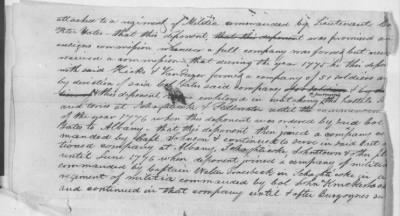 attached to a regiment of Militia commanded by Lieutenant Co
Peter Yates – that this deponent, that this deponent was promised an
ensigns commission whenever a full company was formed but never
received a commission, that during the year 1775 he this depon
with said Hicks & formed a company of 51 soldiers an
by direction of said Col Yates said company
this deponent employed in watching the hostile
and tories at Schaghticoke & Stillwater until the commencement
of the year 1776 when this deponent was ordered by said Col
Yates to Albany, that this deponent then joined a company com
manded by & continued to serve in said last
tioned company at Albany, Schaghticoke, & other pl
until June 1776 when deponent joined a company of militia
commanded by Captain Walter in Schaghticoke in a
regiment of militia commanded by Col John Knickerbacker
and continued in that company until & after Burgoynes